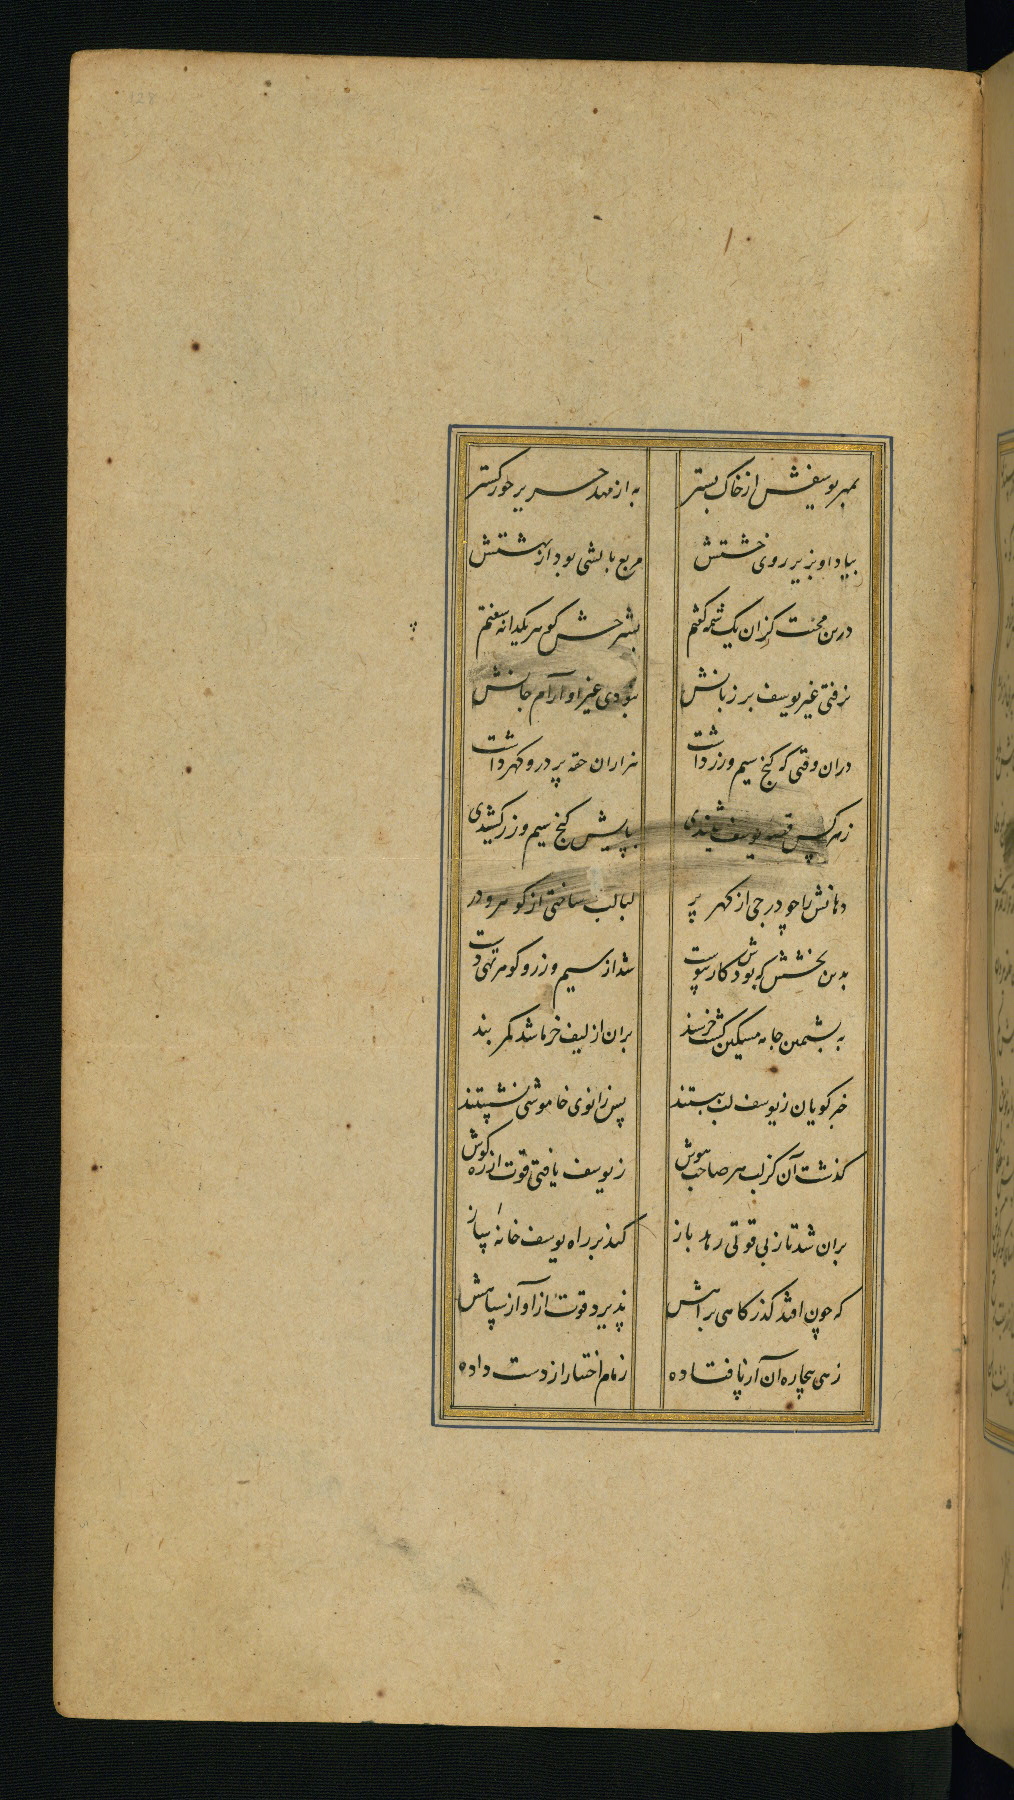 بمهر یوسفش از خاک بستر
به از مهد حریر حور گستر
بیاد او بزیر روی خشتش
مربع بالشی بود از بهشتش
درین محنت کزان یک شمه گفتم
بشرحش گوهر یکدانه سفتم
نرفتی غیر یوسف بر زبانش
نبودی غیر او آرام جانش
دران وقتی که گنج سیم و زر داشت
هزاران حقه پر در و گهر داشت
ز هر کس قصه یوسف شنیدی
بپایش گنج سیم و زر کشیدی
دهانش را چو درجی از گهر پر
لبالب ساختی از گوهر و در
بدین بخشش که بودش کار پیوست
شد از سیم و زر و گوهر تهی دست
به پشمین جامه مسکین گشت خرسند
بران از لیف خرما شد کمر بند
خبر گویان ز یوسف لب ببستند
پس زانوی خاموشی نشستند
گذشت آن کز لب هر صاحب هوش
ز یوسف یافتی قوت از ره گوش
بران شد تا ز بی قوتی رهد باز
کند بر راه یوسف خانه‌ای ساز
که چون افتد گذر گاهی براهش
پذیرد قوت از آواز سپاهش
زهی بیچاره آن از پا فتاده
زمام اختیار از دست داده